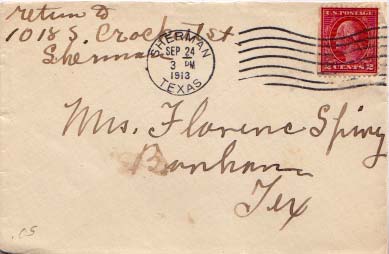 return to
1018 S. Crockett St
Sherman
SHERMAN
SEP 24
3 PM
1913
TEXAS
U.S. POSTAGE
2 CENTS 2
Mrs. Florence Spivy
Bonham
Tex
.05